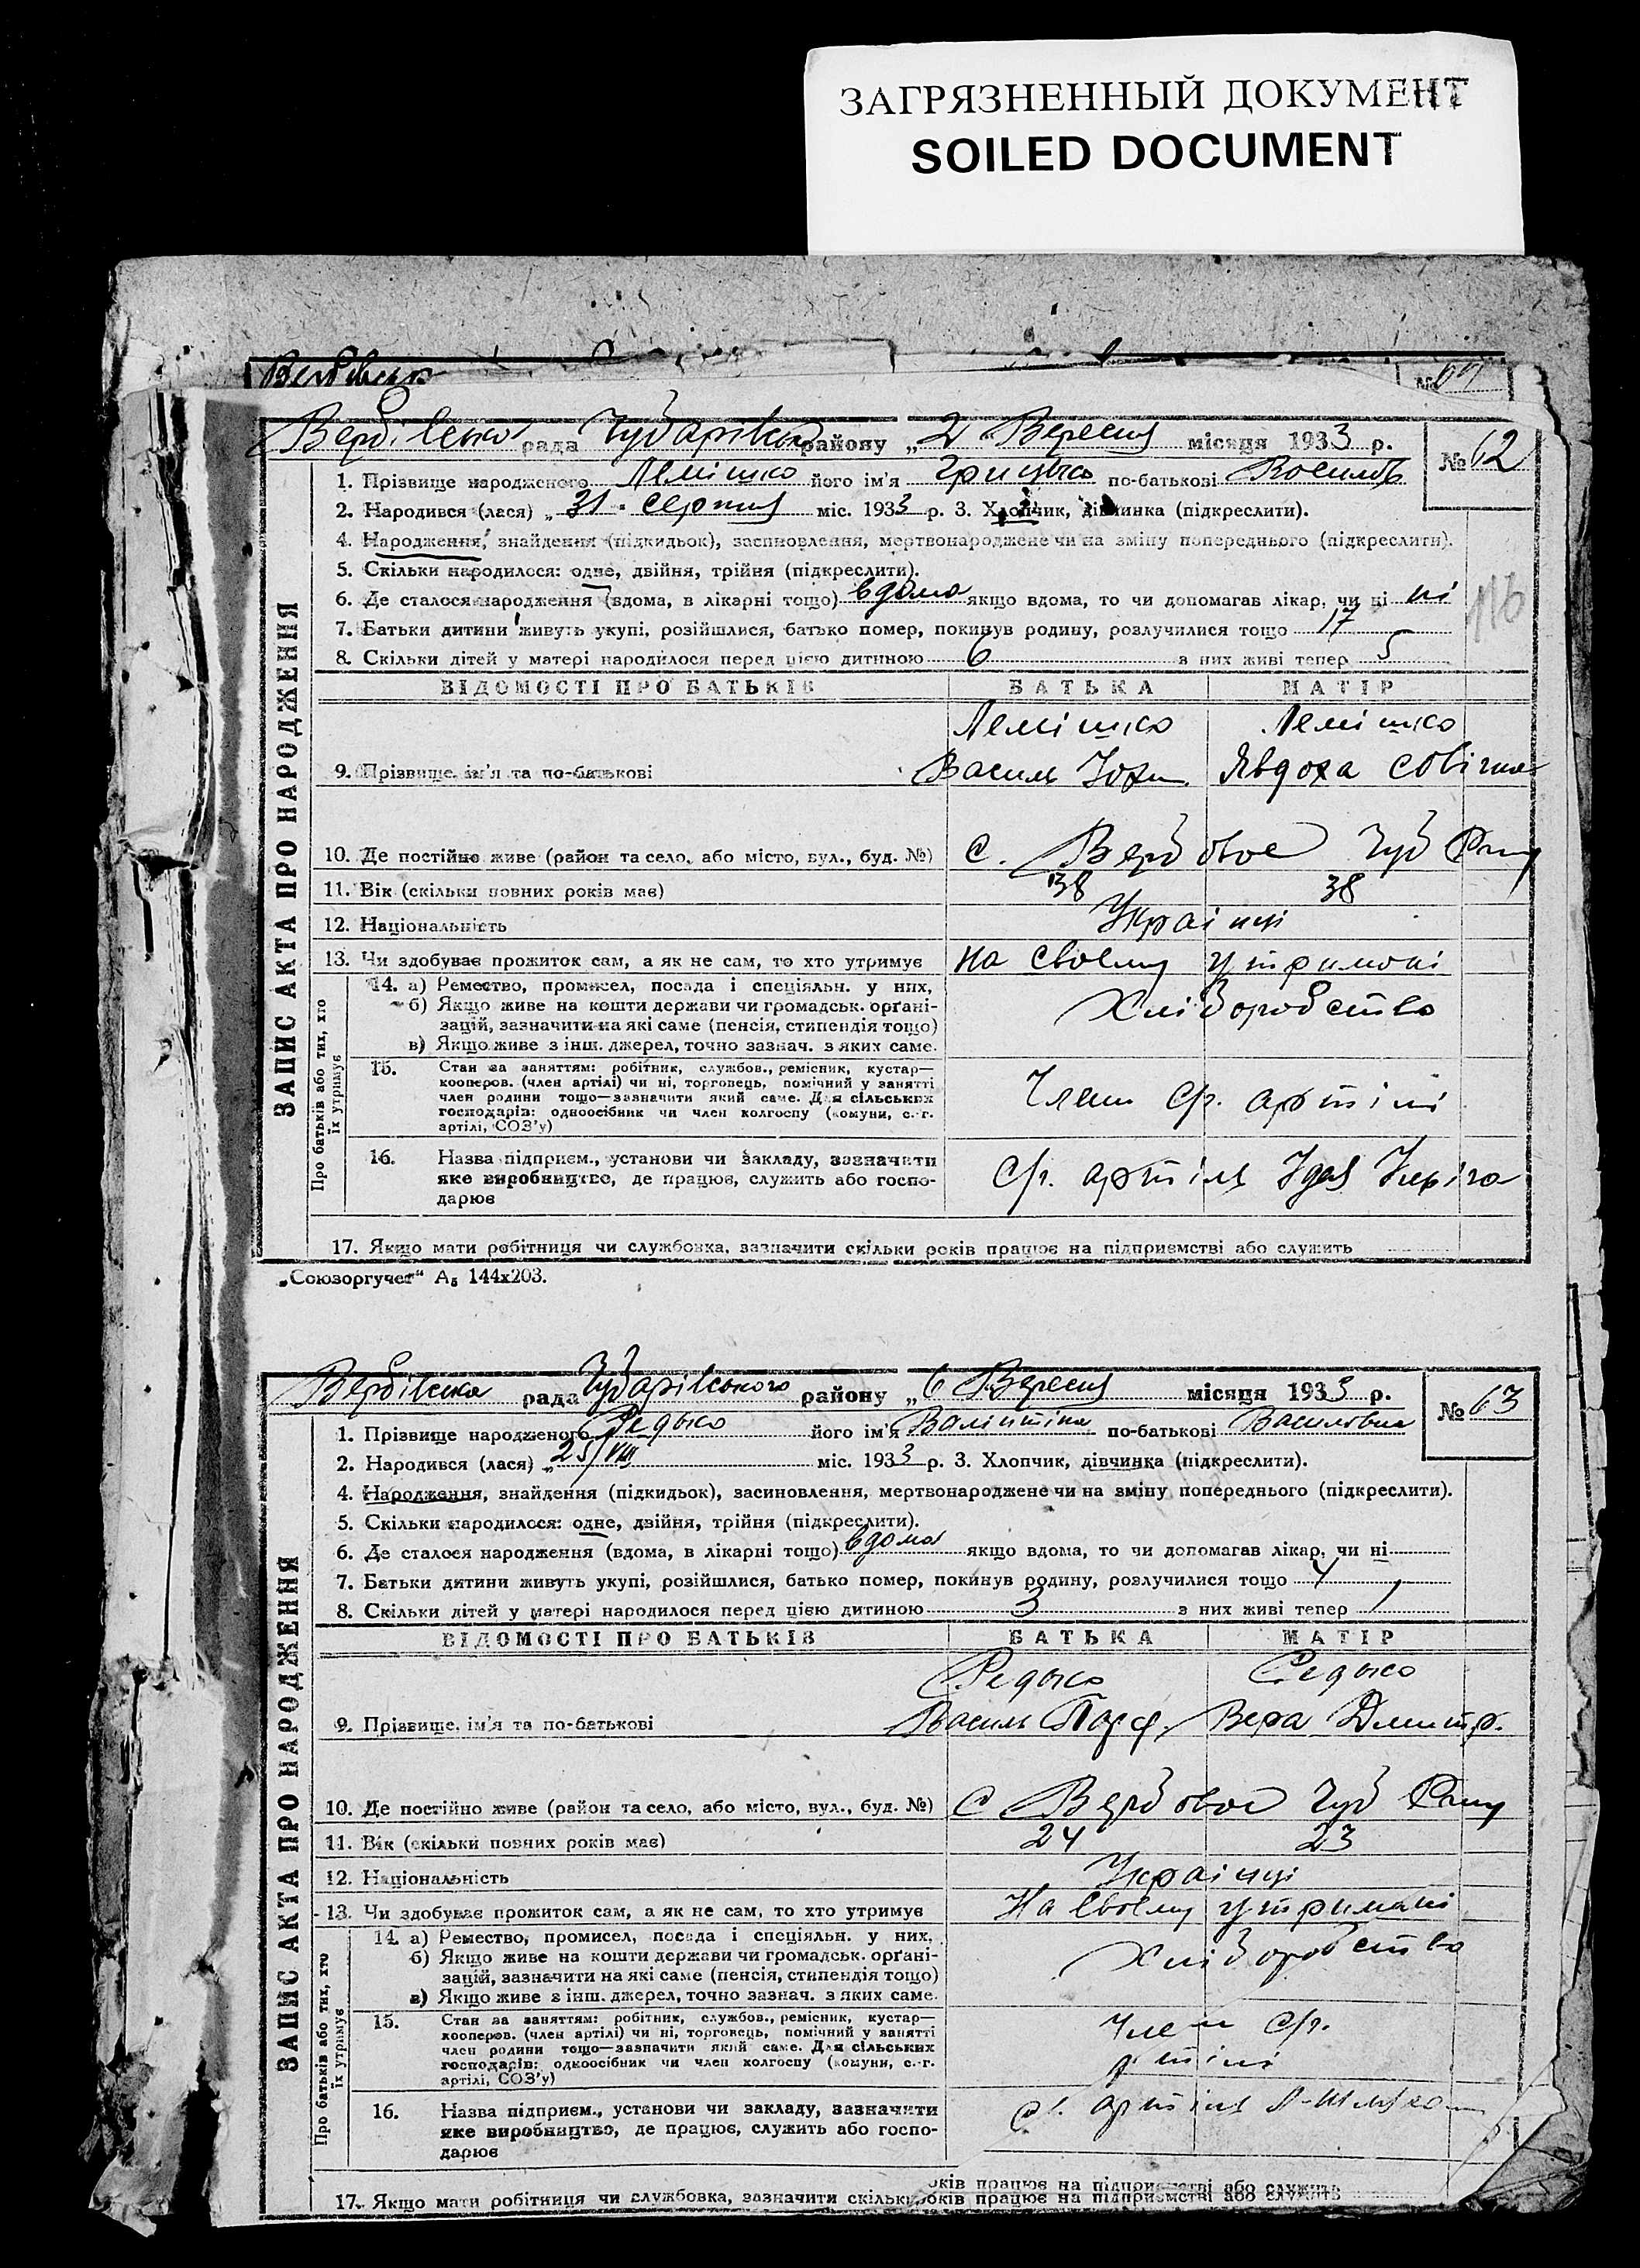 ЗАГРЯЗНЕННЫЙ ДОКУМЕНТ
SOILED DOCUMENT
№
Вербівська рада Чубарівського району „2 Вересня місяця 1933 р.
№ 62
1. Прізвище народженого Лемішко його ім'я Грицько по-батькові Восильов
2. Народився (лася) „31 серпня міс. 1933 р. 3. Хлопчик, дівчинка (підкреслити).
4. Народження, знайдення (підкидьок), засиновлення, мертвонароджене чи на зміну попереднього (підкреслити).
5. Скільки народилося: одне, двійня, трійня (підкреслити).
6. Де сталося народження (вдома, в лікарні тощо) вдома якщо вдома, то чи допомагав лікар, чи ні ні
7. Батьки дитини живуть укупі, розійшлися, батько помер, покинув родину, розлучилися тощо 17
116
8. Скільки дітей у матері народилося перед цією дитиною 6 з них живі тепер 5
ВІДОМОСТІ ПРО БАТЬКІВ БАТЬКА МАТІР
Лемішко Лемішко
9. Прізвище, ім'я та по-батькові Василь Явдоха
10. Де постійно живе (район та село, або місто, вул., буд. №) с. Вербовое Чуб Рану
11. Вік (скільки повних років має) 38 38
12. Національність Українці
13. Чи здобуває прожиток сам, а як не сам, то хто утримує на своєму утримані
14. а) Ремество, промисел, посада і спеціяльн. у них,
б) Якщо живе на кошти держави чи громадськ. орґані-
зацій, зазначити на які саме (пенсія, стипендія тощо)
в) Якщо живе з інш. джерел, точно зазнач. з яких саме.
Хліборобство
15. Стан за заняттям: робітник, службов., ремісник, кустар—
кооперов. (член артілі) чи ні, торговець, помічний у занятті
член родини тощо—зазначити який саме. Для сільських
господарів: одноосібник чи член колгоспу (комуни, с.-г.
артілі, СОЗ'у)
Член С/г. артілі
16. Назва підприєм., установи чи закладу, зазначити
яке виробництво, де працює, служить або госпо-
дарює
С/г. артіль
17. Якщо мати робітниця чи службовка, зазначити скільки років працює на підприємстві або служить
ЗАПИС АКТА ПРО НАРОДЖЕННЯ
Про батьків або тих, хто
їх утримує
„Союзоргучет“ А₅ 144x203.
Вербівська рада Чубарівського району „6 Вересня місяця 1933 р.
№ 63
1. Прізвище народженого Редько його ім'я Валінтіна по-батькові Василовна
2. Народився (лася) „25/VIII міс. 1933 р. 3. Хлопчик, дівчинка (підкреслити).
4. Народження, знайдення (підкидьок), засиновлення, мертвонароджене чи на зміну попереднього (підкреслити).
5. Скільки народилося: одне, двійня, трійня (підкреслити).
6. Де сталося народження (вдома, в лікарні тощо) вдома якщо вдома, то чи допомагав лікар, чи ні
7. Батьки дитини живуть укупі, розійшлися, батько помер, покинув родину, розлучилися тощо 4
8. Скільки дітей у матері народилося перед цією дитиною 3 з них живі тепер 1
ВІДОМОСТІ ПРО БАТЬКІВ БАТЬКА МАТІР
Редько Редько
9. Прізвище, ім'я та по-батькові Василь Парф. Вера Дмитр.
10. Де постійно живе (район та село, або місто, вул., буд. №) с Вербовое Чуб Рану
11. Вік (скільки повних років має) 24 23
12. Національність Українці
13. Чи здобуває прожиток сам, а як не сам, то хто утримує На своєму утримані
14. а) Ремество, промисел, посада і спеціяльн. у них,
б) Якщо живе на кошти держави чи громадськ. орґані-
зацій, зазначити на які саме (пенсія, стипендія тощо)
в) Якщо живе з інш. джерел, точно зазнач. з яких саме.
Хліборобство
15. Стан за заняттям: робітник, службов., ремісник, кустар—
кооперов. (член артілі) чи ні, торговець, помічний у занятті
член родини тощо—зазначити який саме. Для сільських
господарів: одноосібник чи член колгоспу (комуни, с.-г.
артілі, СОЗ'у)
Член С/г.
ртілі
16. Назва підприєм., установи чи закладу, зазначити
яке виробництво, де працює, служить або госпо-
дарює
артіль
оків працює на підприємстві або служить
17. Якщо мати робітниця чи службовка, зазначити скільки років працює на підприємстві або служить
ЗАПИС АКТА ПРО НАРОДЖЕННЯ
Про батьків або тих, хто
їх утримує